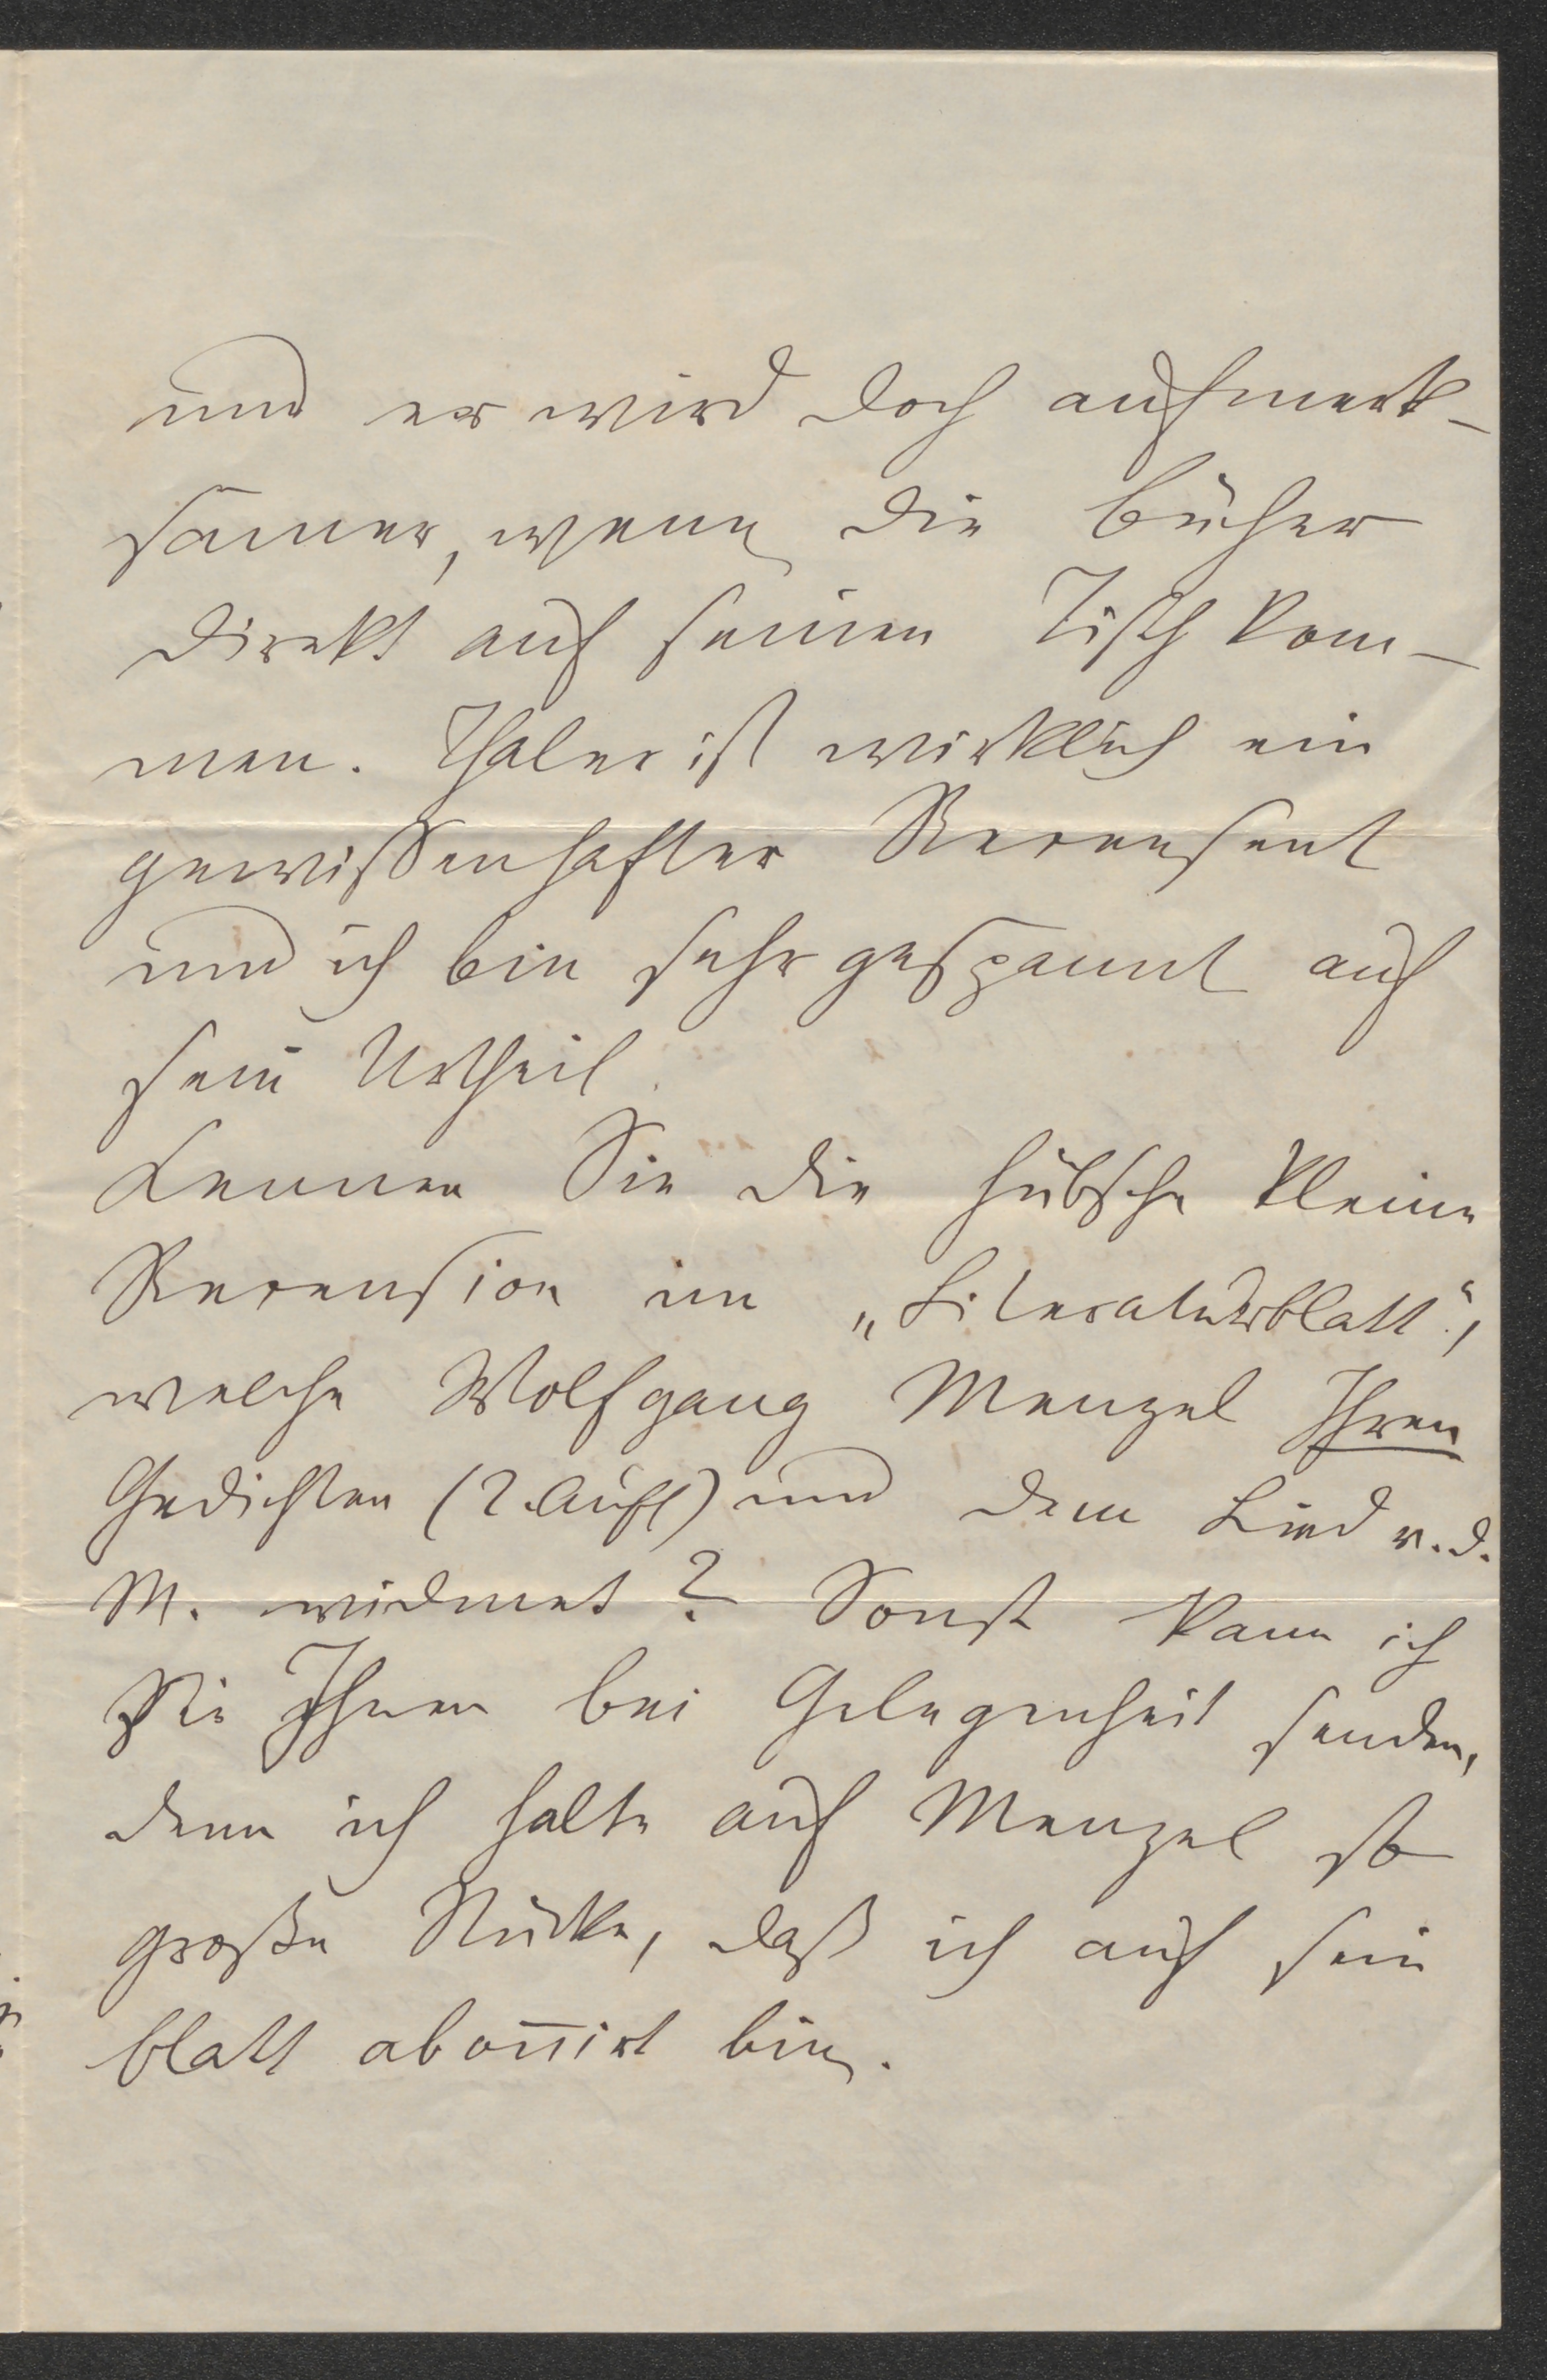 und er wird doch aufmerk-
samer, wenn die Bücher
direkt auf seinen Tisch kom-
men. Thaler ist wirklich ein
gewissenhafter Recensent
und ich bin sehr gespannt auf
sein Urtheil.
Kennen Sie die hübsche kleine
Recension im „Literaturblatt“,
welche Wolfgang Menzel Ihren
Gedichten (2. Aufl) und dem Lied v. d.
M. widmet? Sonst kann ich
sie Ihnen bei Gelegenheit senden,
denn ich halte auf Menzel so
große Stücke, daß ich auf sein
Blatt abon̄irt bin.